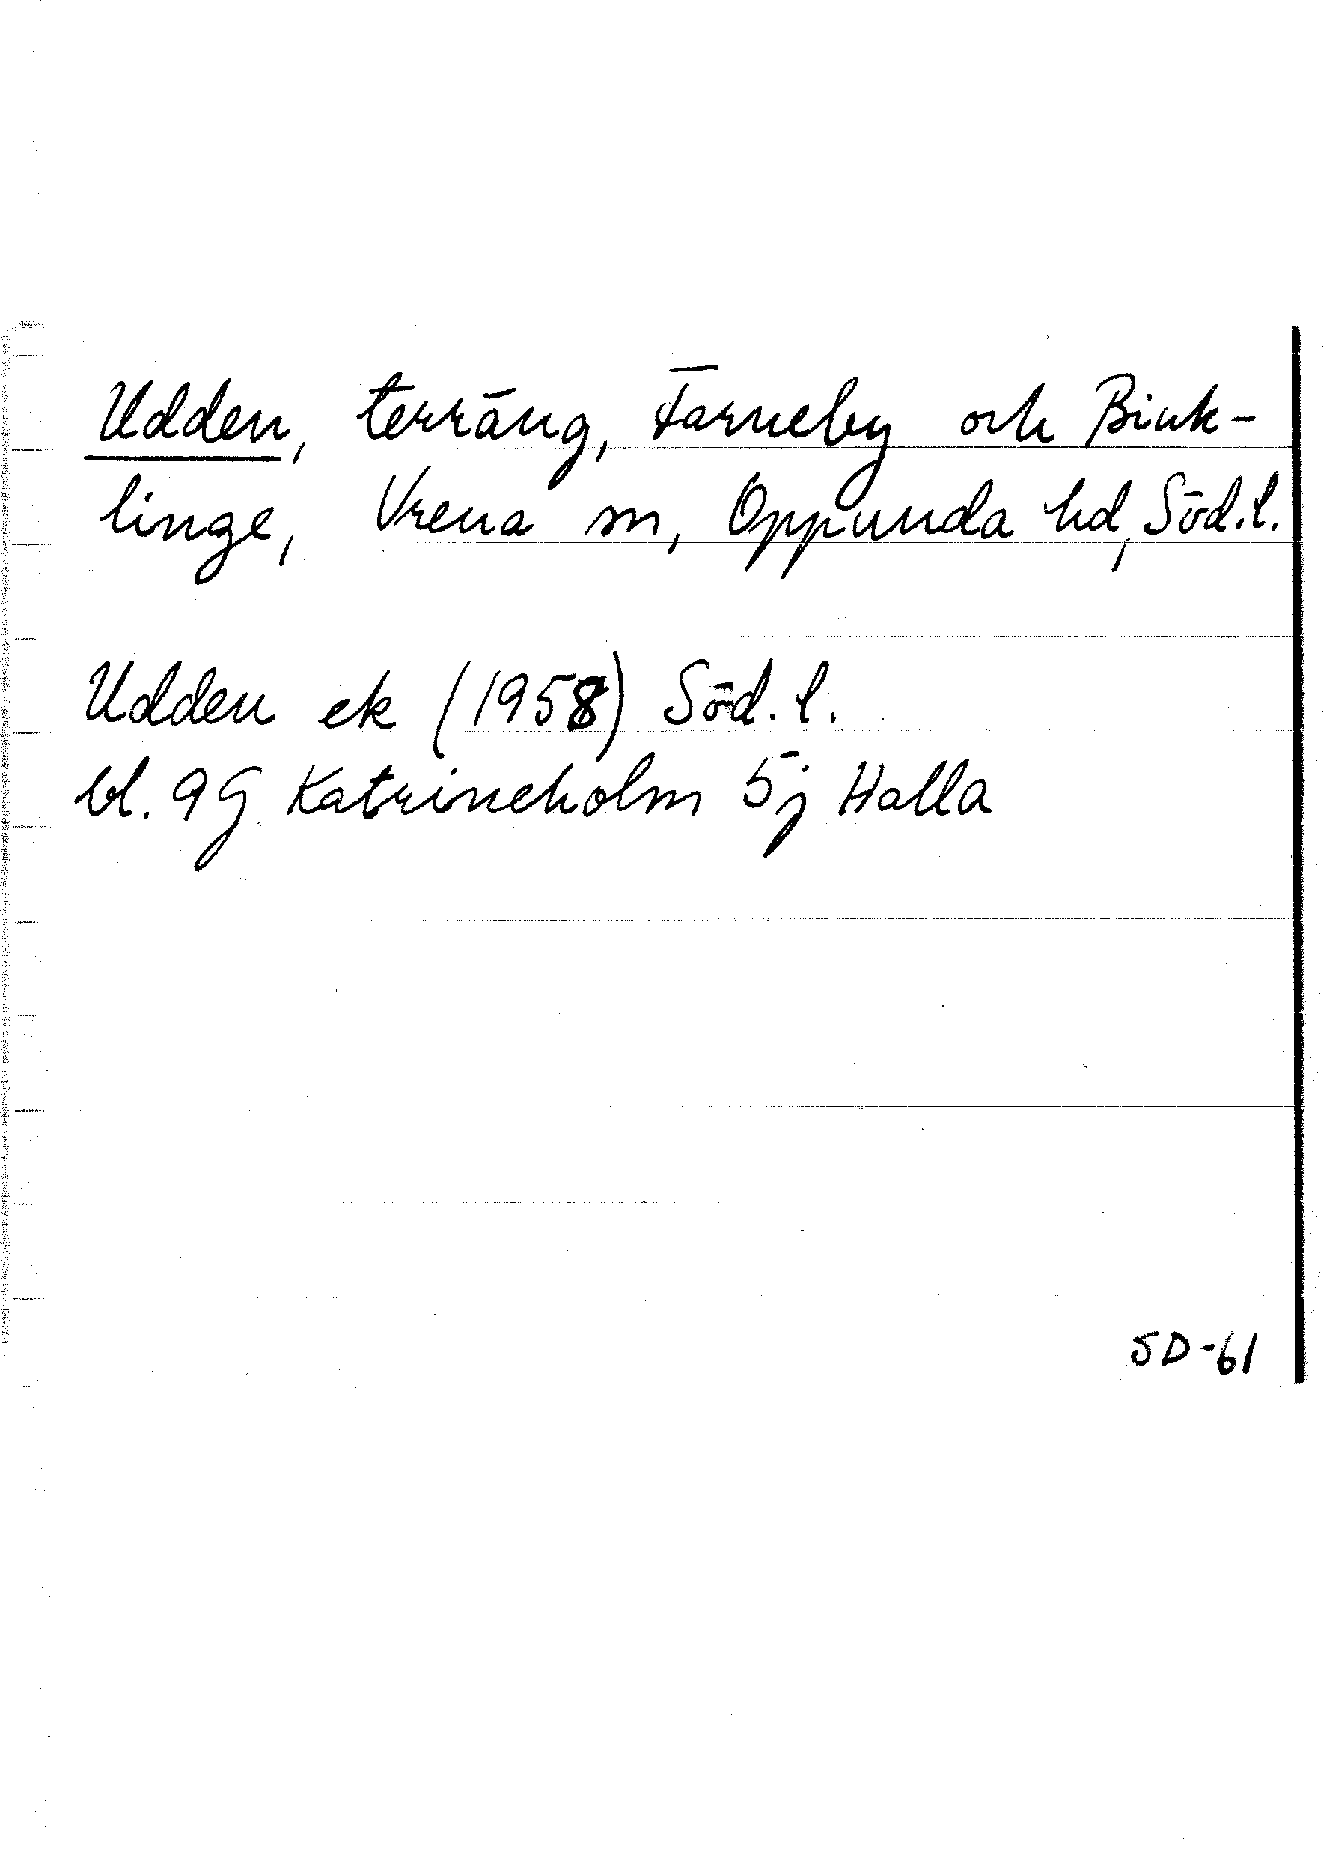 Udden, terräng, Farneby och Bink-
linge, Vrena sn, Oppunda hd, Söd.l.
Udden ek (1958) Söd.l.
bl. 9G Katrineholm 5j Halla
SD-61